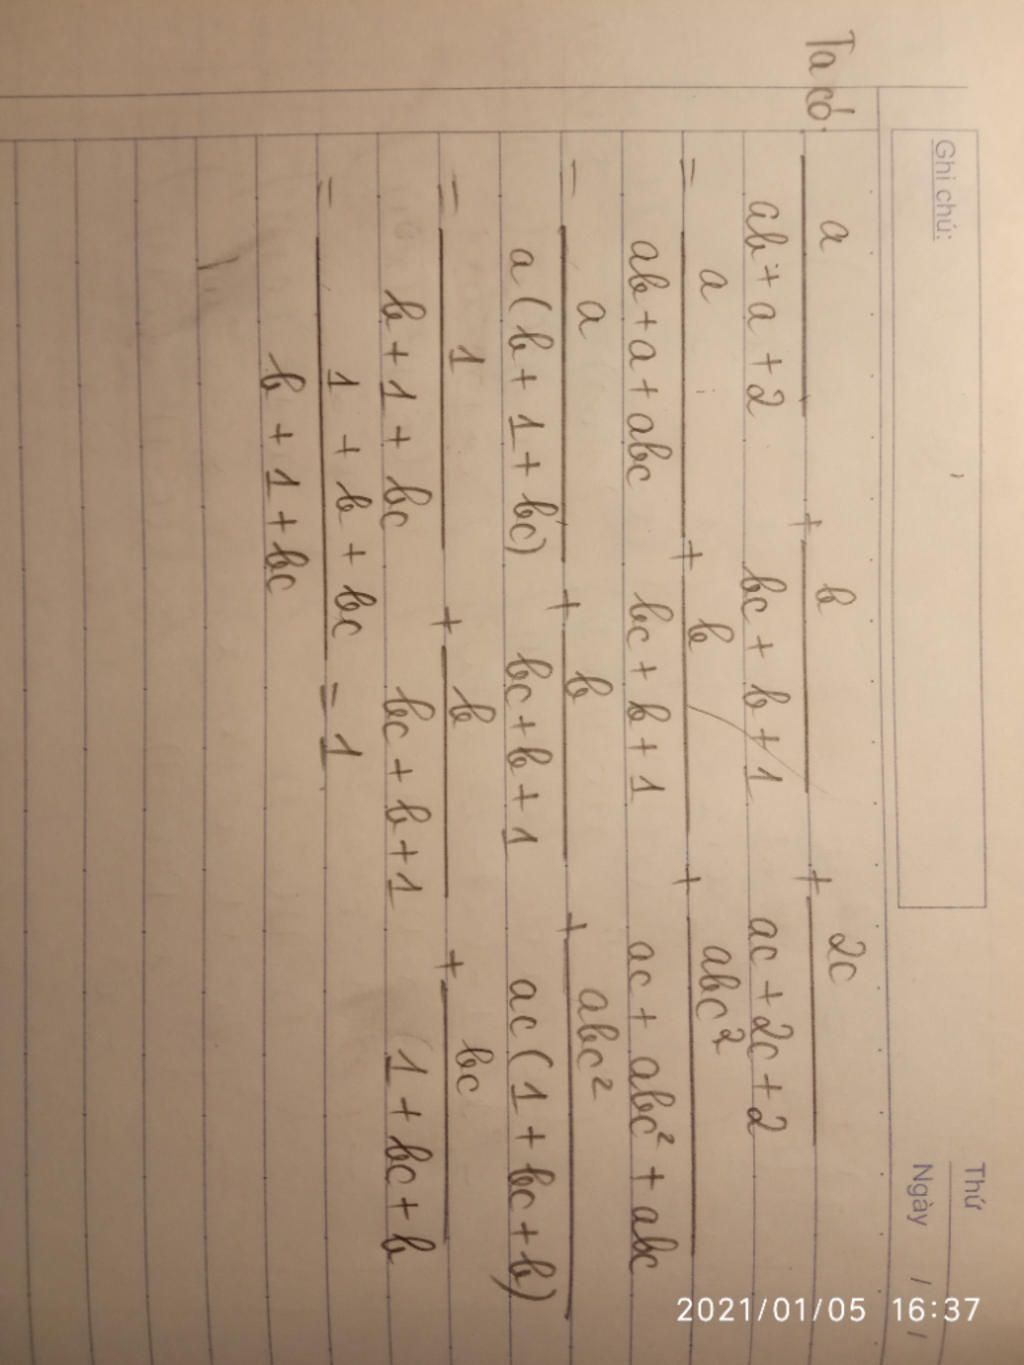 Thứ
Ngày / /
Ghi chú:
Ta có: a/(ab + a + 2) + b/(bc + b + 1) + 2c/(ac + 2c + 2)
= a/(ab + a + abc) + b/(bc + b + 1) + abc²/(ac + abc² + abc)
= a/(a(b + 1 + bc)) + b/(bc + b + 1) + abc²/(ac(1 + bc + b))
= 1/(b + 1 + bc) + b/(bc + b + 1) + bc/(1 + bc + b)
= (1 + b + bc)/(b + 1 + bc) = 1
2021/01/05 16:37